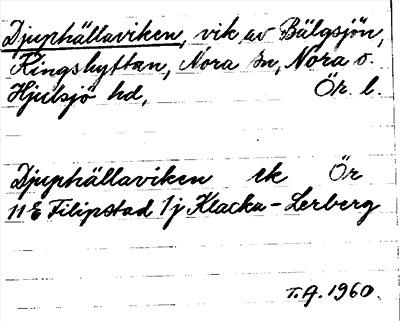 Djuphällaviken, vik av Bälgsjön,
Ringshyttan, Nora sn, Nora o.
Hjulsjö hd, Ör. l.
Djuphällaviken ek Ör
11 E Filipstad 1 j Klacka-Lerberg
T.A. 1960.